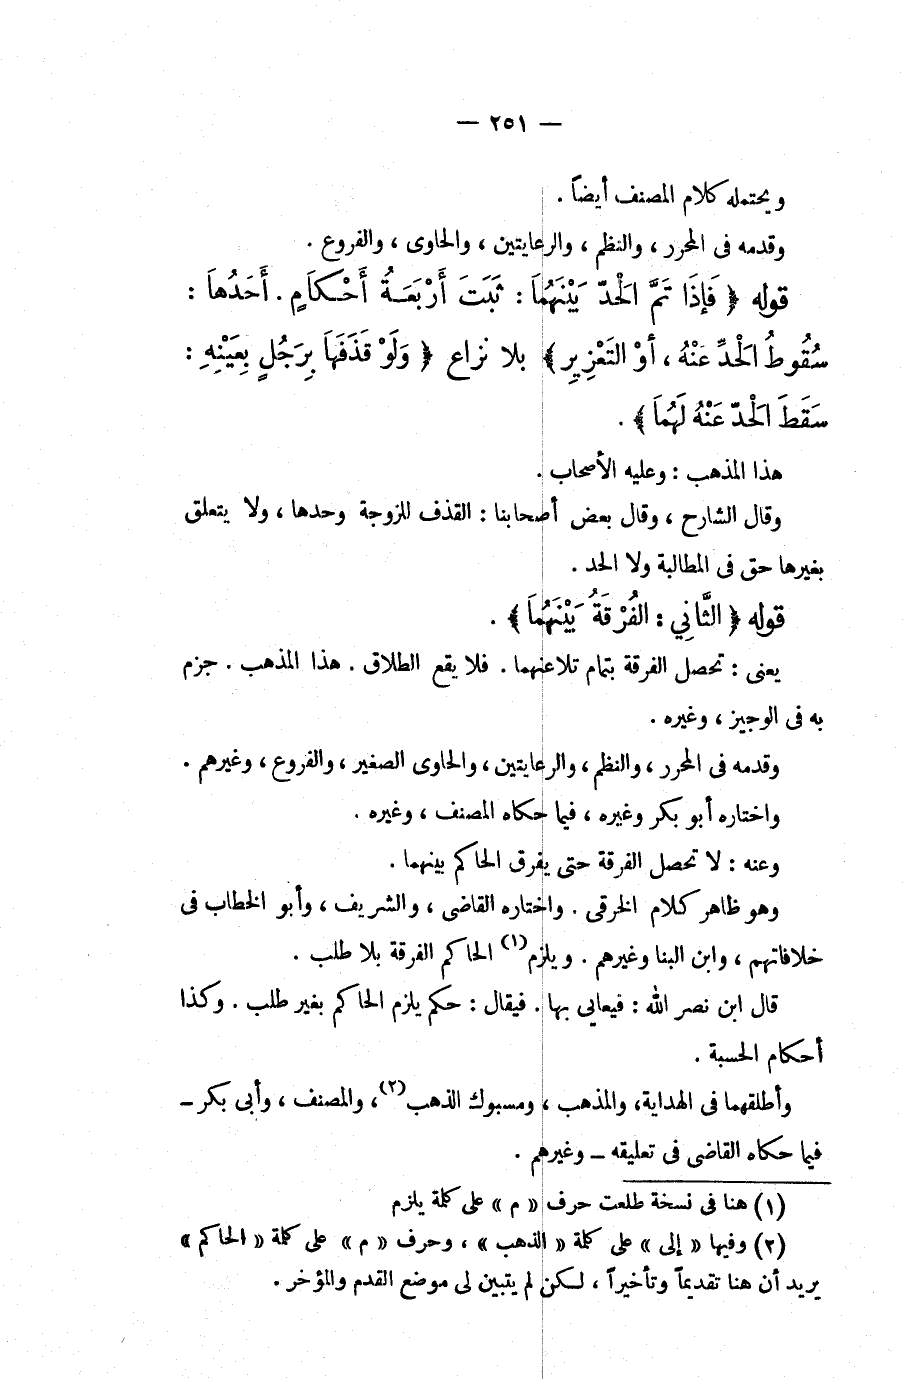 — ٢٥١ —
ويحتمله كلام المصنف أيضاً .
وقدمه فى المحرر ، والنظم ، والرعايتين ، والحاوى ، والفروع .
قوله ﴿ فَإِذَا تَمَّ الْحَدّ بَيْنَهُمَا : ثَبَتَ أَرْبَعَةُ أَحْكَامٍ . أَحَدُهَا :
سُقُوطُ الْحَدِّ عَنْهُ ، أوْ التَعْزِيرِ ﴾ بلا نزاع ﴿ وَلَوْ قَذَفَهَا بِرَجُلٍ بِعَيْنِهِ :
سَقَطَ الْحَدّ عَنْهُ لَهُمَا ﴾ .
هذا المذهب : وعليه الأصحاب .
وقال الشارح ، وقال بعض أصحابنا : القذف للزوجة وحدها ، ولا يتعلق
بغيرها حق فى المطالبة ولا الحد .
قوله ﴿ الثَّانِي : الفُرْقَةُ بَيْنَهُمَا ﴾ .
يعنى : تحصل الفرقة بتمام تلاعنهما . فلا يقع الطلاق . هذا المذهب . جزم
به فى الوجيز ، وغيره .
وقدمه فى المحرر ، والنظم ، والرعايتين ، والحاوى الصغير ، والفروع ، وغيرهم .
واختاره أبو بكر وغيره ، فيما حكاه المصنف ، وغيره .
وعنه : لا تحصل الفرقة حتى يفرق الحاكم بينهما .
وهو ظاهر كلام الخرقى . واختاره القاضى ، والشريف ، وأبو الخطاب فى
خلافاتهم ، وابن البنا وغيرهم . ويلزم (١) الحاكم الفرقة بلا طلب .
قال ابن نصر الله : فيعايى بها . فيقال : حكم يلزم الحاكم بغير طلب . وكذا
أحكام الحسبة .
وأطلقهما فى الهداية، والمذهب ، ومسبوك الذهب (٢) ، والمصنف ، وأبى بكر ــ
فيما حكاه القاضى فى تعليقه ــ وغيرهم .
(١) هنا فى نسخة طلعت حرف « م » على كلمة يلزم
(٢) وفيها « إلى » على كلمة « الذهب » ، وحرف « م » على كلمة « الحاكم »
يريد أن هنا تقديماً وتأخيراً ، لكن لم يتبين لى موضع القدم والمؤخر .